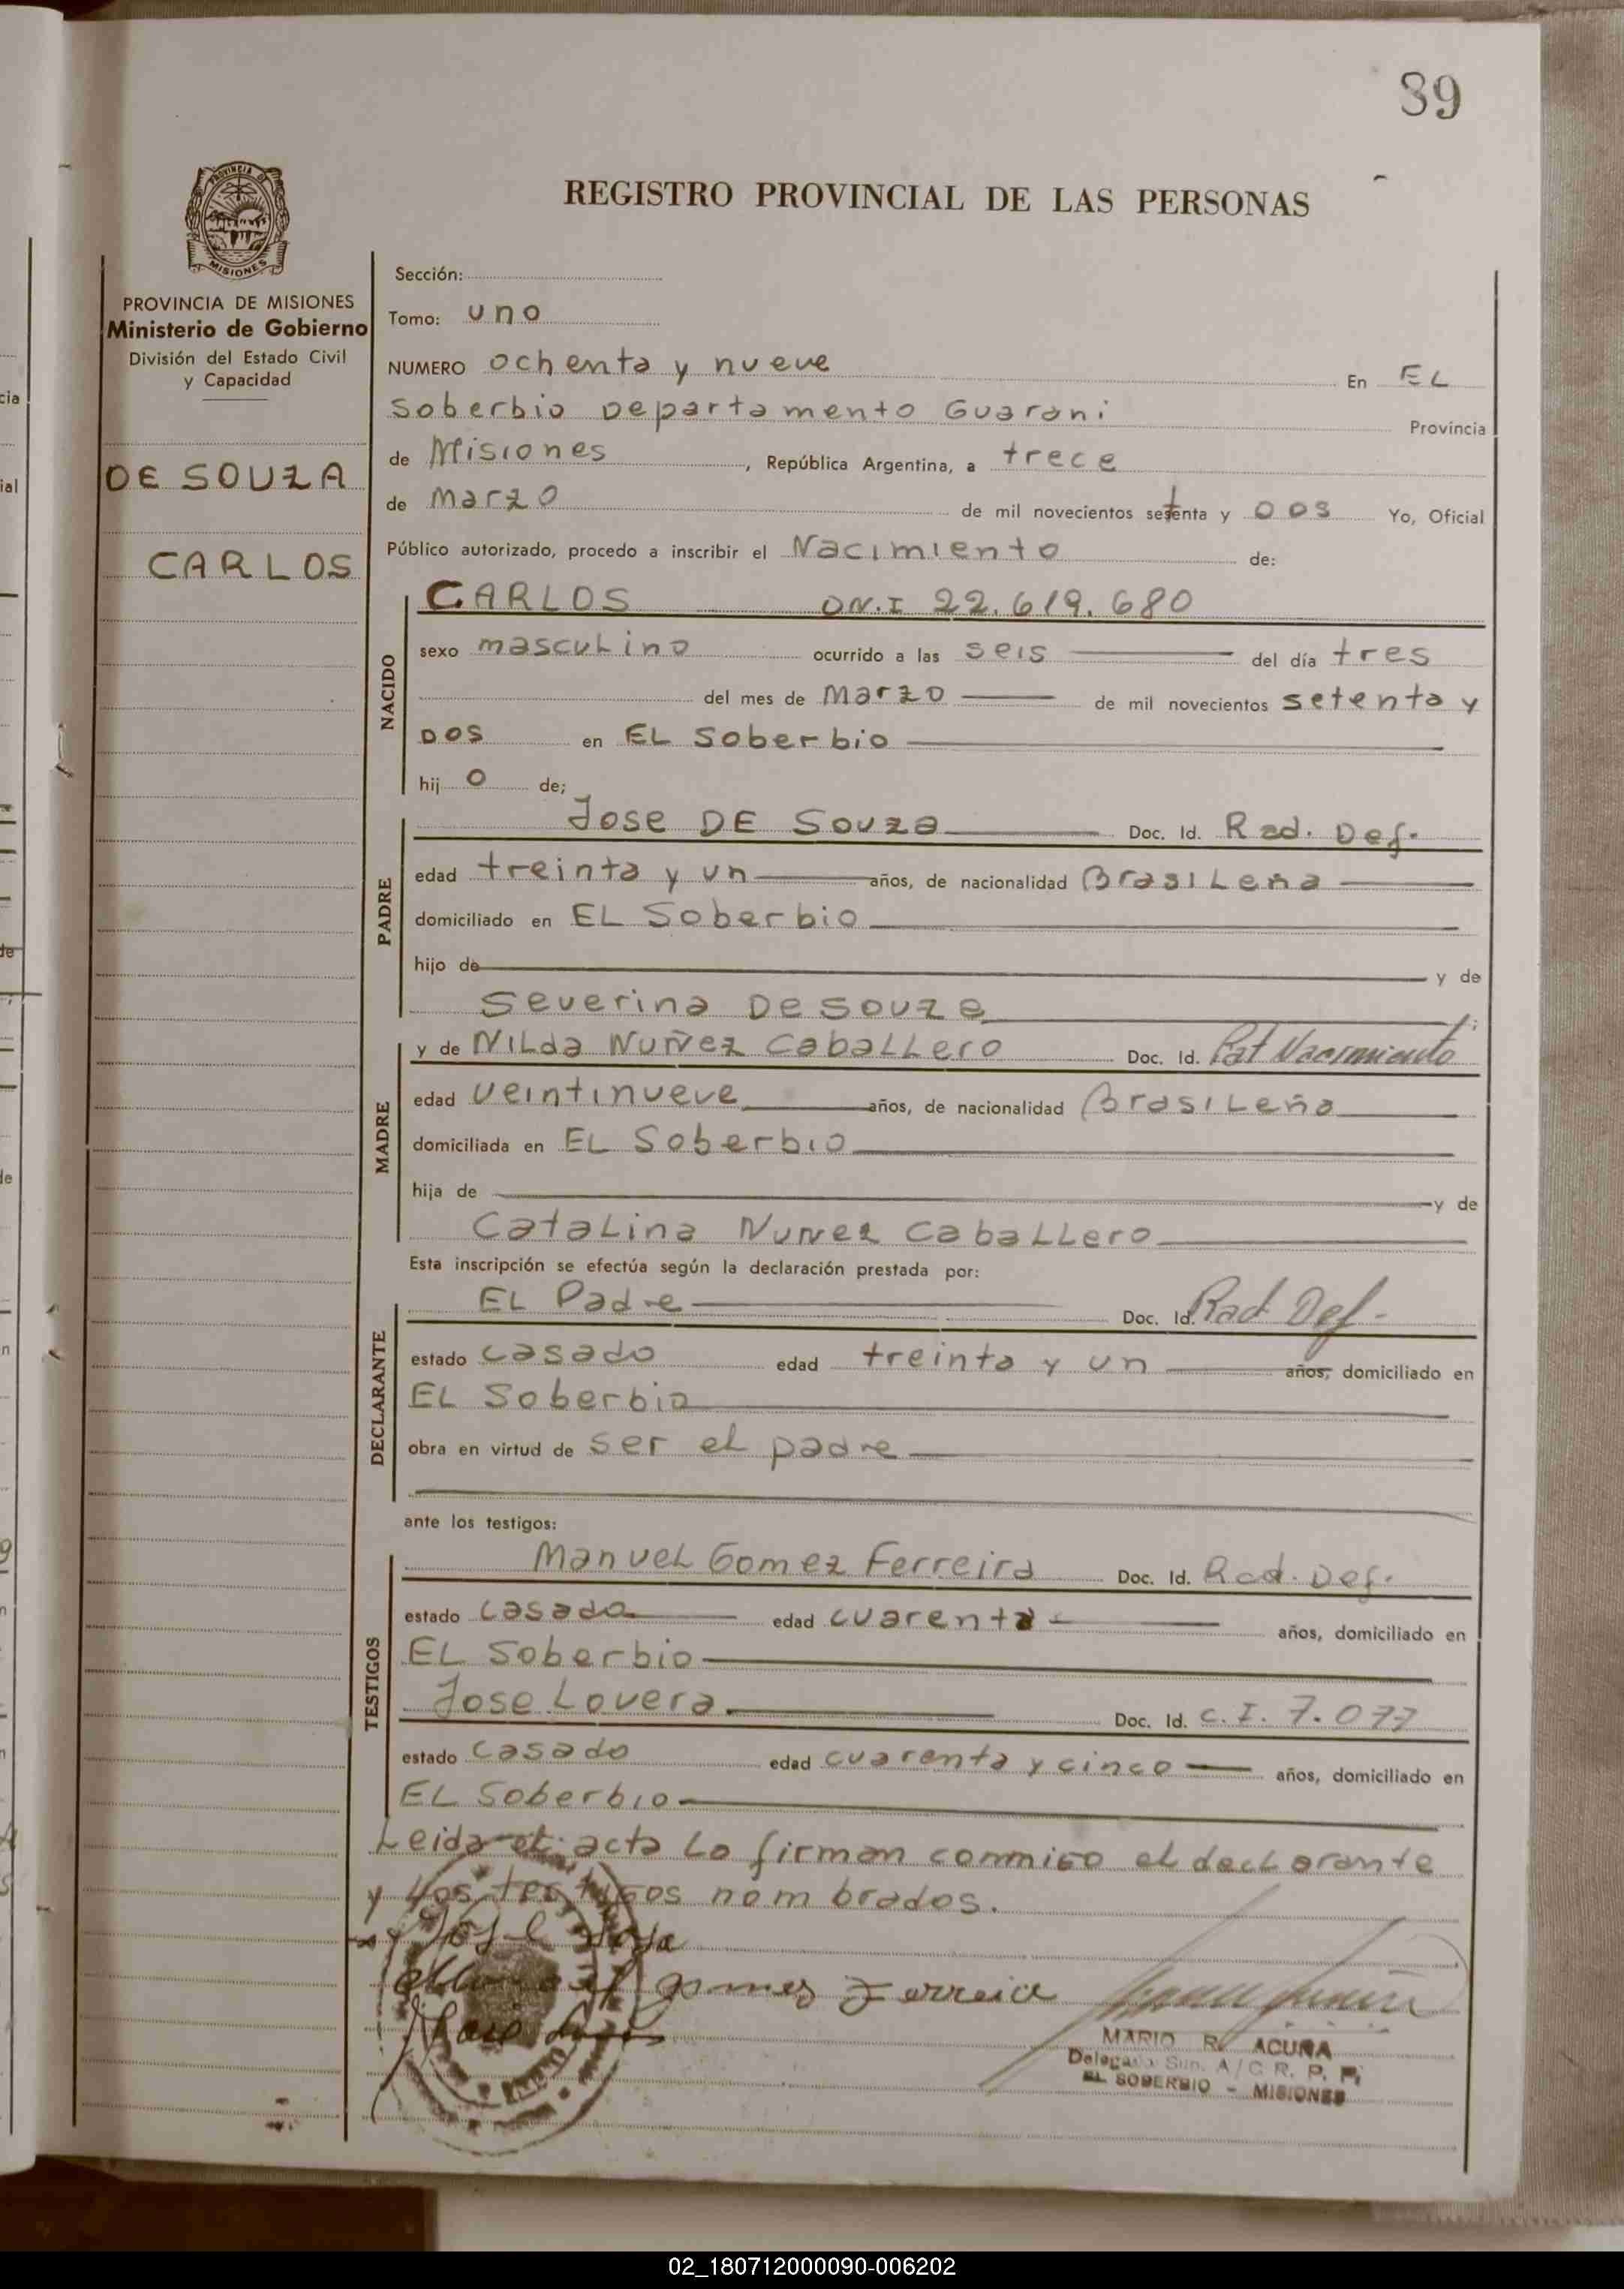 89
PROVINCIA DE
MISIONES
PROVINCIA DE MISIONES
Ministerio de Gobierno
División del Estado Civil
y Capacidad
DE SOUZA
CARLOS
REGISTRO PROVINCIAL DE LAS PERSONAS
Sección:
Tomo: uno
NUMERO ochenta y nueve En EL
Soberbio Departamento Guarani Provincia
de Misiones, República Argentina, a trece
de marzo de mil novecientos setenta y DOS Yo, Oficial
Público autorizado, procedo a inscribir el Nacimiento de:
NACIDO
CARLOS DN.I 22.619.680
sexo masculino ocurrido a las seis del día tres
del mes de marzo de mil novecientos setenta y
DOS en EL Soberbio
hij o de;
PADRE
Jose DE Souza Doc. Id. Rad. Def.
edad treinta y un años, de nacionalidad Brasileña
domiciliado en EL Soberbio
hijo de y de
Severina De Souza ;
MADRE
y de Nilda Nuñez Caballero Doc. Id. Pat Nacimiento
edad veintinueve años, de nacionalidad Brasileña
domiciliada en EL Soberbio
hija de y de
Catalina Nuñez Caballero
Esta inscripción se efectúa según la declaración prestada por:
DECLARANTE
EL Padre Doc. Id. Rad Def-
estado casado edad treinta y un años, domiciliado en
EL Soberbio
obra en virtud de ser el padre
ante los testigos:
TESTIGOS
Manuel Gomez Ferreira Doc. Id. Rad. Def.
estado casado edad cuarenta años, domiciliado en
EL Soberbio
Jose Lovera Doc. Id. C.I. 7.077
estado casado edad cuarenta y cinco años, domiciliado en
EL Soberbio
Leida el acta lo firman conmigo el declarante
y los testigos nombrados.
gomes Ferreira
MARIO R. ACUÑA
Delegado Sup. A/C R. P. P.
EL SOBERBIO - MISIONES
02_180712000090-006202